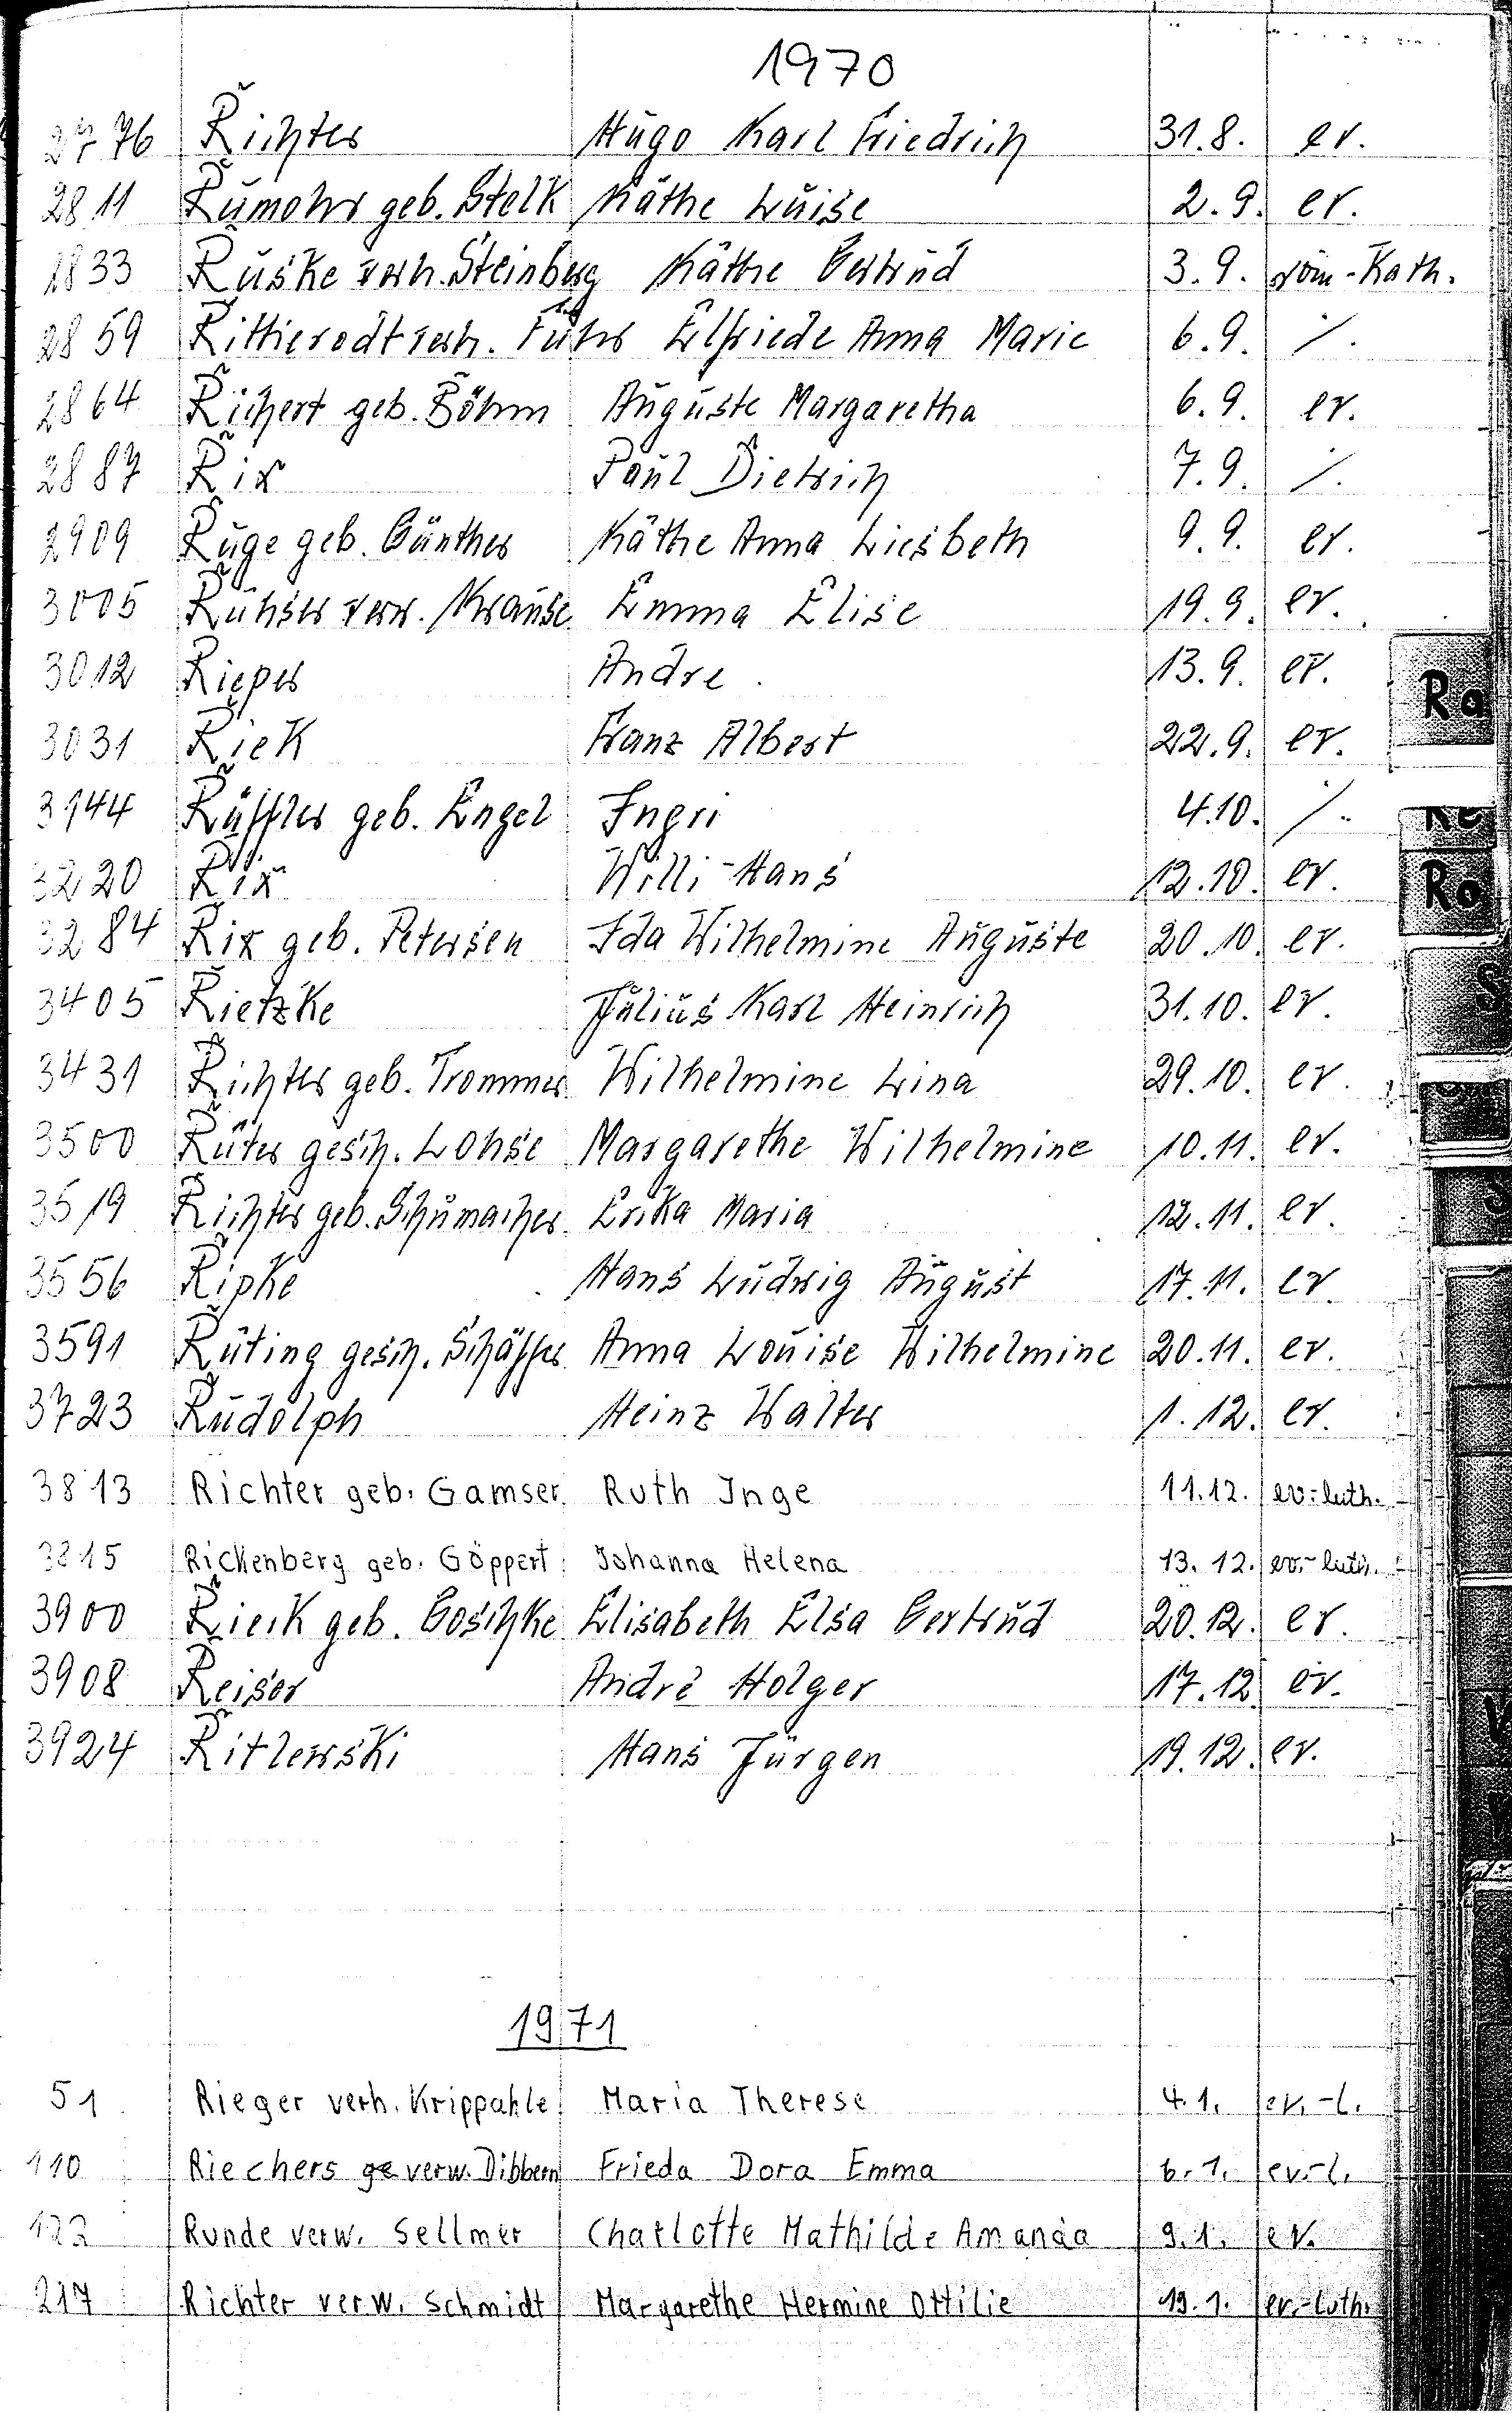 1970
2776 Richter Hugo Karl Friedrich 31.8. ev.
2811 Rumohr geb. Stelk Käthe Luise 2.9. ev.
2833 Ruske verh. Steinberg Käthe Gertrud 3.9. röm-Kath.
2859 Rittierodt verh. Führ Elfriede Anna Marie 6.9. /.
2864 Richert geb. Böhm Auguste Margaretha 6.9. ev.
2887 Rix Paul Dietrich 7.9. /.
2909 Ruge geb. Günther Käthe Anna Liesbeth 9.9. ev.
3005 verw. Krause Emma Elise 19.9. ev.
3012 Rieper Andre 13.9. ev.
3031 Riek Franz Albert 22.9. ev.
3144 Rüffler geb. Engel 4.10. /.
3220 Rix Willi-Hans 12.10. ev.
3284 Rix geb. Petersen Ida Wilhelmine Auguste 20.10. ev.
3405 Rietzke Julius Karl Heinrich 31.10. ev.
3431 Richter geb. Trommer Wilhelmine Lina 29.10. ev.
3500 Rüter gesch. Lohse Margarethe Wilhelmine 10.11. ev.
3519 Richter geb. Schumacher Erika Maria 12.11. ev.
3556 Ripke Hans Ludwig August 17.11. ev.
3591 Rüting gesch. Schäffer Anna Louise Wilhelmine 20.11. ev.
3723 Rudolph Heinz Walter 1.12. ev.
3813 Richter geb. Gamser Ruth Inge 11.12. ev.-luth.
3815 Rickenberg geb. Göppert Johanna Helena 13.12. ev.-luth.
3900 Rieck geb. Goschke Elisabeth Elsa Gertrud 20.12. ev.
3908 Reiser André Holger 17.12. ev.
3924 Ritlewski Hans Jürgen 19.12. ev.
1971
51 Rieger verh. Krippahle Maria Therese 4.1. ev.-l.
110 Riechers ge verw. Dibbern Frieda Dora Emma 6.1. ev.-l.
122 Runde verw. Sellmer Charlotte Mathilde Amanda 9.1. ev.
217 Richter verw. Schmidt Margarethe Hermine Ottilie 19.1. ev.-luth.
Ra
Re
Ro
S